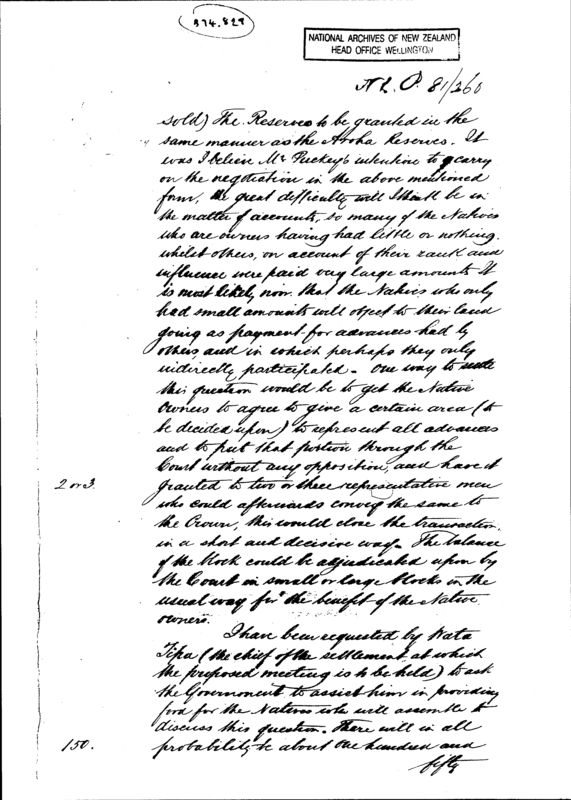 374.827
NATIONAL ARCHIVES OF NEW ZEALAND
HEAD OFFICE WELLINGTON
N L. P. 81/260
sold) The Reserves to be granted in the
same manner as the Aroha Reserves. It
was I believe Mr Puckey's intention to carry
on the negotiation in the above mentioned
form, the great difficulty will I think be in
the matter of accounts, so many of the Natives
who are owners having had little or nothing,
whilst others, on account of their rank and
influence were paid very large amounts It
is most likely, now, that the Natives who only
had small amounts will object to their land
going as payment for advances had by
others, and in which perhaps they only
indirectly participated. One way to settle
this question would be to get the Native
Owners to agree to give a certain area (to
be decided upon) to represent all advances
and to put that portion through the
Court without any opposition, and have it
2 or 3. granted to two or three representative men
who could afterwards convey the same to
the Crown, this would close the transaction
in a short and decisive way. The balance
of the block could be adjudicated upon by
the Court in small or large blocks in the
usual way for the benefit of the Native
owners.
I have been requested by Wata
Tipa (the chief of the settlement at which
the proposed meeting is to be held) to ask
the Government to assist him in providing
food for the Natives who will assemble to
discuss this question. There will in all
150. probability be about one hundred and
fifty